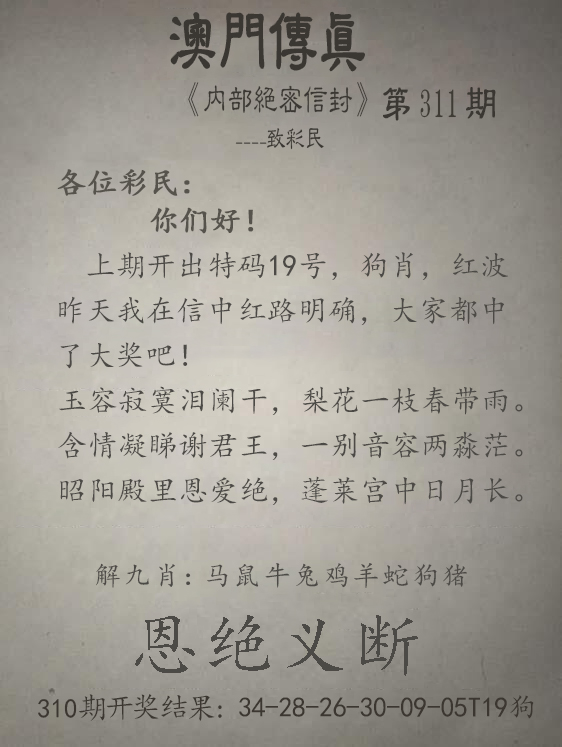 澳門傳眞
《内部絕密信封》第311期
----致彩民
各位彩民：
你们好！
上期开出特码19号，狗肖，红波
昨天我在信中红路明确，大家都中
了大奖吧！
玉容寂寞泪阑干，梨花一枝春带雨。
含情凝睇谢君王，一别音容两淼茫。
昭阳殿里恩爱绝，蓬莱宫中日月长。
解九肖：马鼠牛兔鸡羊蛇狗猪
恩绝义断
310期开奖结果：34-28-26-30-09-05T19狗